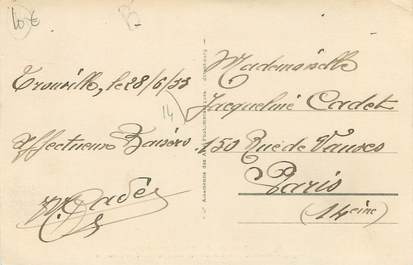 10€
Trouville, le 28/6/33
Affectueux Baisers
Mademoiselle
Jacqueline Cadet
150 Rue de Vanves
Paris
(14eme)
14